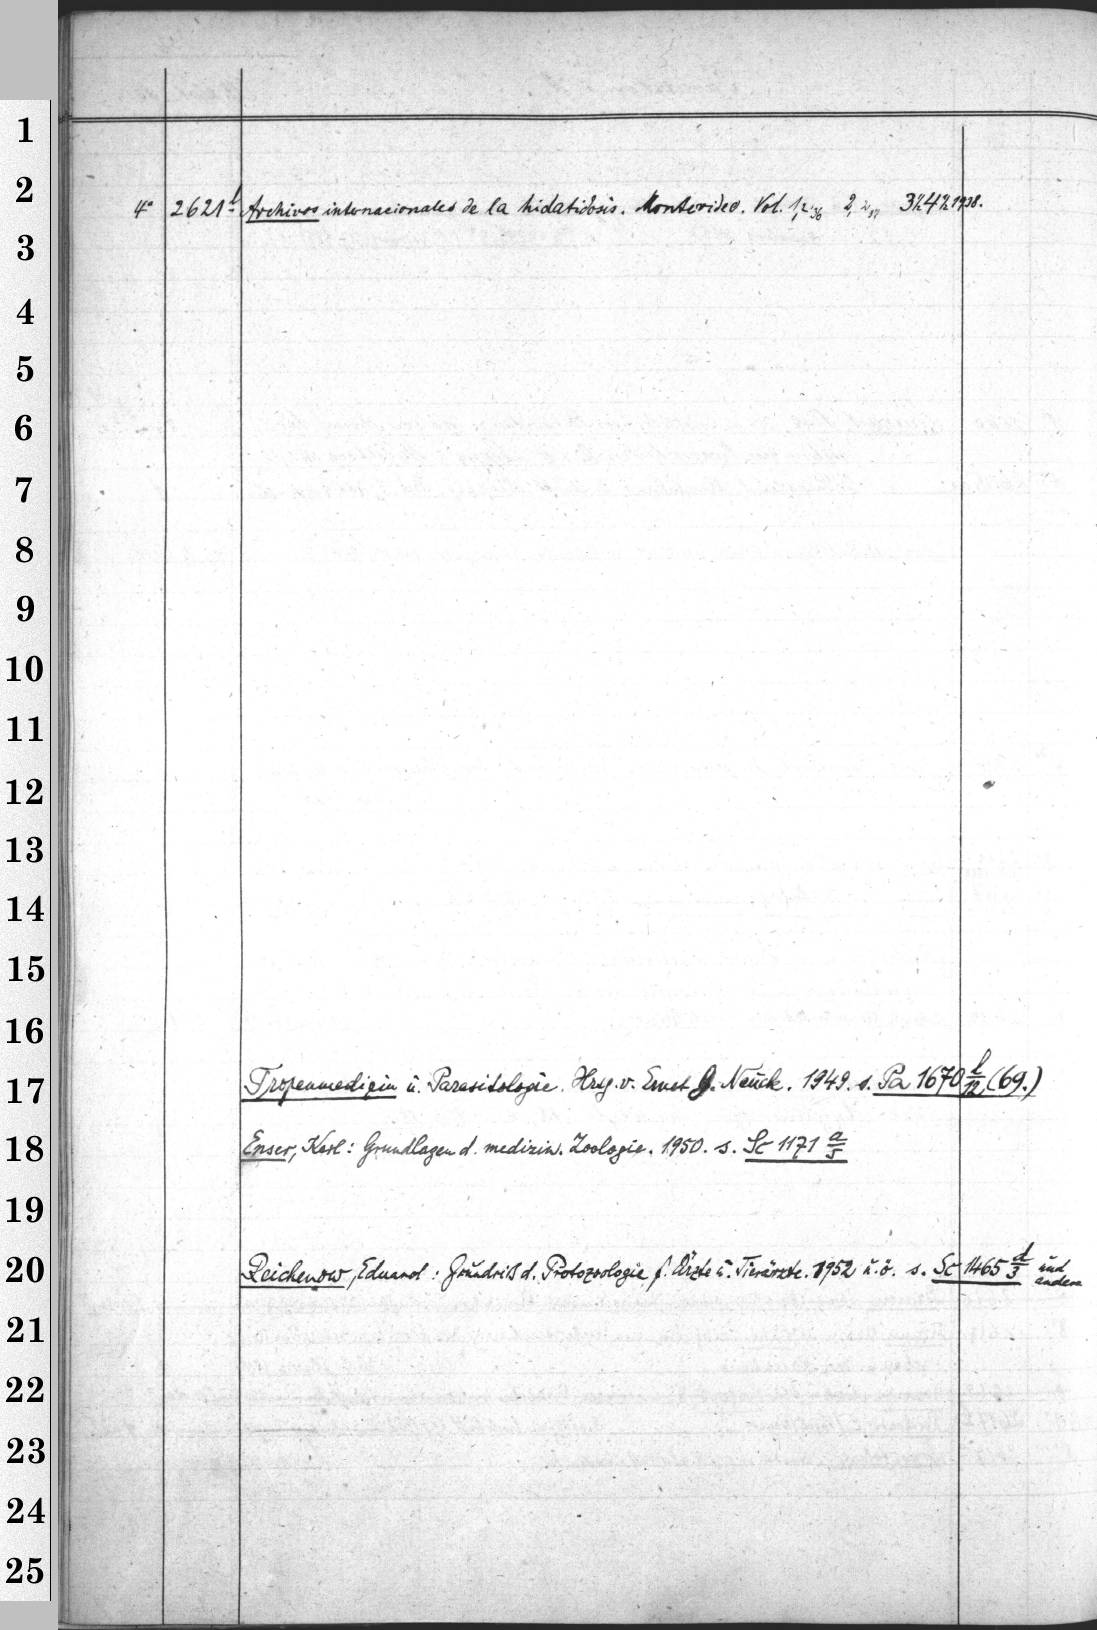 1
2
4° 2621 l Archivos internacionales de la hidatidosis. Montevideo. Vol. 1, 2, 3/4 1938.
3
4
5
6
7
8
9
10
11
12
13
14
15
16
17 Tropenmedizin u. Parasitologie. Hrsg. v. Ernst G. Nauck. 1949. s. Pa 1670 l/12 (69.)
18 Enser, Karl: Grundlagen d. medizin. Zoologie. 1950. s. Sc 1171 a/5
19
20 Reichenow, Eduard: Grundriß d. Protozoologie f. Ärzte u. Tierärzte. 1952 u.ö. s. Sc 1465 d/3 und andere
21
22
23
24
25